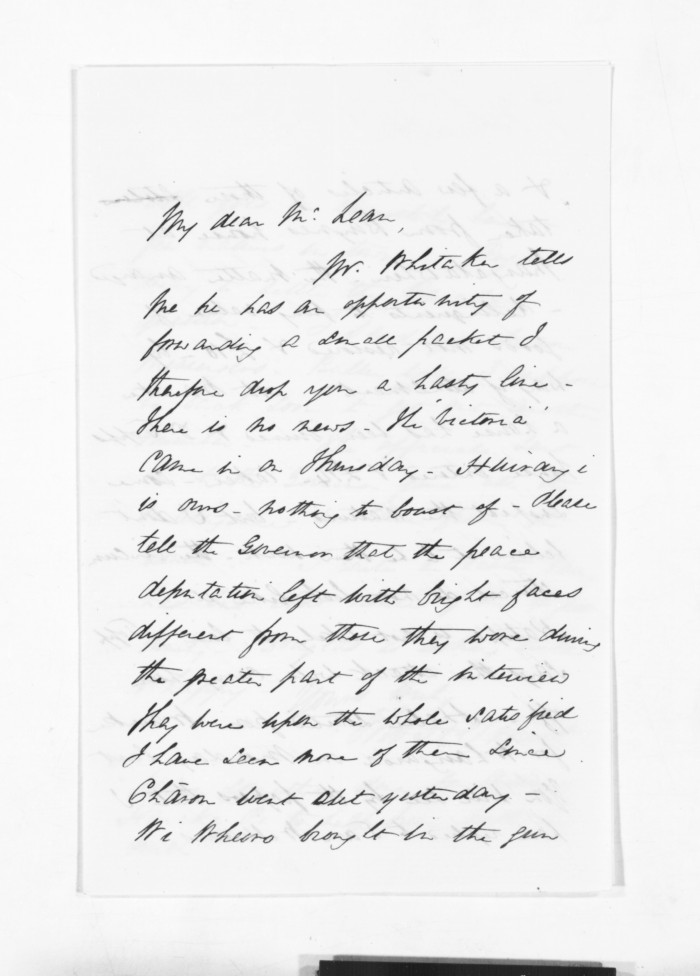 My dear Mc. Lean,
Mr. Whitaker tells
me he has an opportunity of
forwarding a small packet I
therefore drop you a hasty line -
There is no news - The 'Victoria'
came in on Thursday - Huirangi
is ours - nothing to boast of - Please
tell the Governor that the peace
deputation left with bright faces
different from those they wore during
the greater part of the interview
They were upon the whole satisfied
I have seen none of them since
went yesterday -
Wi Wheoro brought in the gun